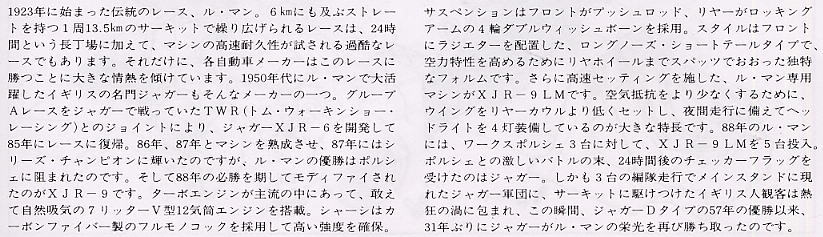 1923年に始まった伝統のレース、ル・マン。6kmにも及ぶストレー
トを持つ1周13.5kmのサーキットで繰り広げられるレースは、24時
間という長丁場に加えて、マシンの高速耐久性が試される過酷なレ
ースでもあります。それだけに、各自動車メーカーはこのレースに
勝つことに大きな情熱を傾けています。1950年代にル・マンで大活
躍したイギリスの名門ジャガーもそんなメーカーの一つ。グループ
Aレースをジャガーで戦っていたTWR(トム・ウォーキンショー・
レーシング)とのジョイントにより、ジャガーXJR-6を開発して
85年にレースに復帰。86年、87年とマシンを熟成させ、87年にはシ
リーズ・チャンピオンに輝いたのですが、ル・マンの優勝はポルシ
ェに阻まれたのです。そして88年の必勝を期してモディファイされ
たのがXJR-9です。ターボエンジンが主流の中にあって、敢え
て自然吸気の7リッターV型12気筒エンジンを搭載。シャーシはカ
ーボンファイバー製のフルモノコックを採用して高い強度を確保。
サスペンションはフロントがプッシュロッド、リヤーがロッキング
アームの4輪ダブルウィッシュボーンを採用。スタイルはフロント
にラジエターを配置した、ロングノーズ・ショートテールタイプで、
空力特性を高めるためにリヤホイールまでスパッツでおおった独特
なフォルムです。さらに高速セッティングを施した、ル・マン専用
マシンがXJR-9LMです。空気抵抗をより少なくするために、
ウイングをリヤーカウルより低くセットし、夜間走行に備えてヘッ
ドライトを4灯装備しているのが大きな特長です。88年のル・マン
には、ワークスポルシェ3台に対して、XJR-9LMを5台投入。
ポルシェとの激しいバトルの末、24時間後のチェッカーフラッグを
受けたのはジャガー。しかも3台の編隊走行でメインスタンドに現
れたジャガー軍団に、サーキットに駆けつけたイギリス人観客は熱
狂の渦に包まれ、この瞬間、ジャガーDタイプの57年の優勝以来、
31年ぶりにジャガーがル・マンの栄光を再び勝ち取ったのです。